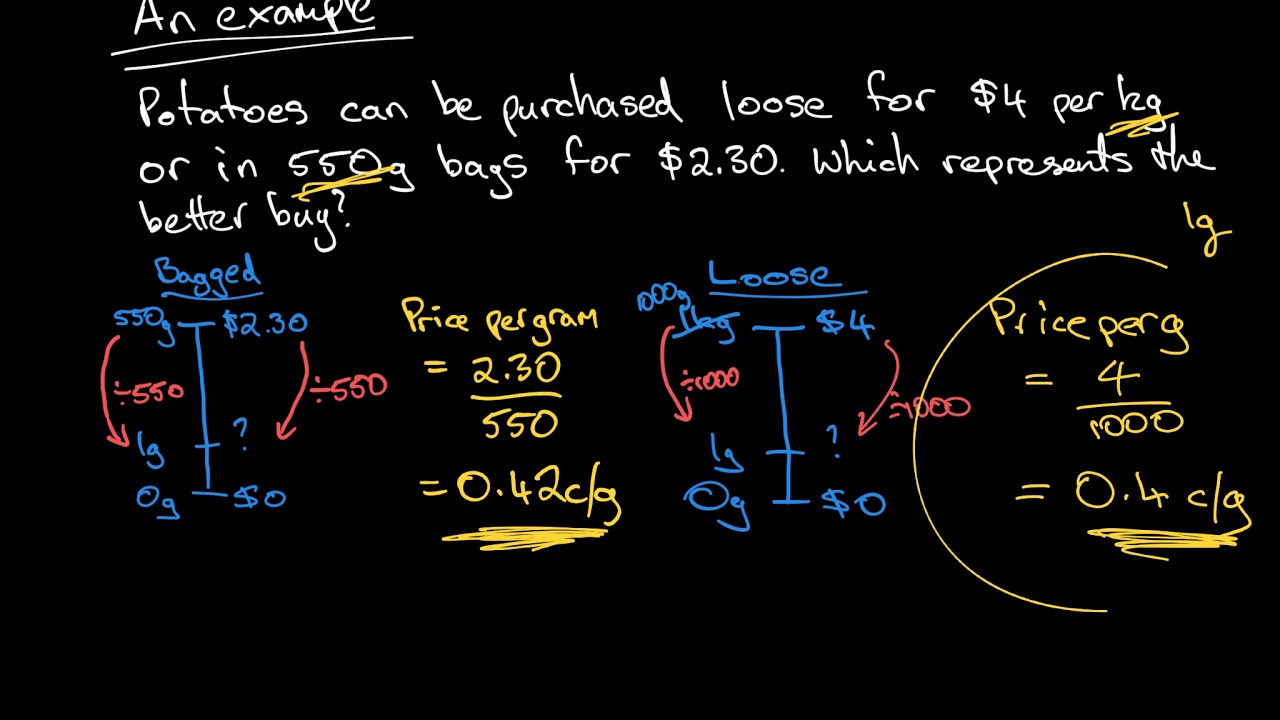 An example
Potatoes can be purchased loose for $4 per kg
or in 550g bags for $2.30. Which represents the
better buy?
1g
Bagged
550g $2.30
÷550 ÷550
1g ?
0g $0
Price per gram
= 2.30
550
= 0.42c/g
Loose
1000g
1kg $4
÷1000 ÷1000
1g ?
0g $0
Price per g
= 4
1000
= 0.4 c/g